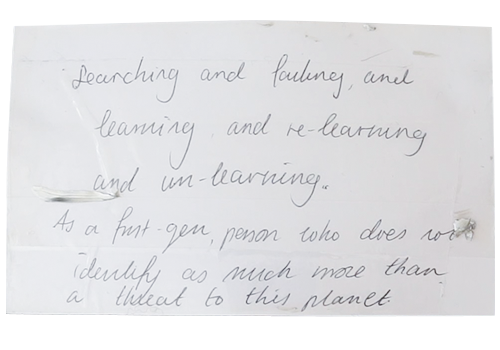 Searching and failing, and
learning and re-learning
and un-learning..
As a first-gen, person who does not
identify as much more than
a threat to this planet.